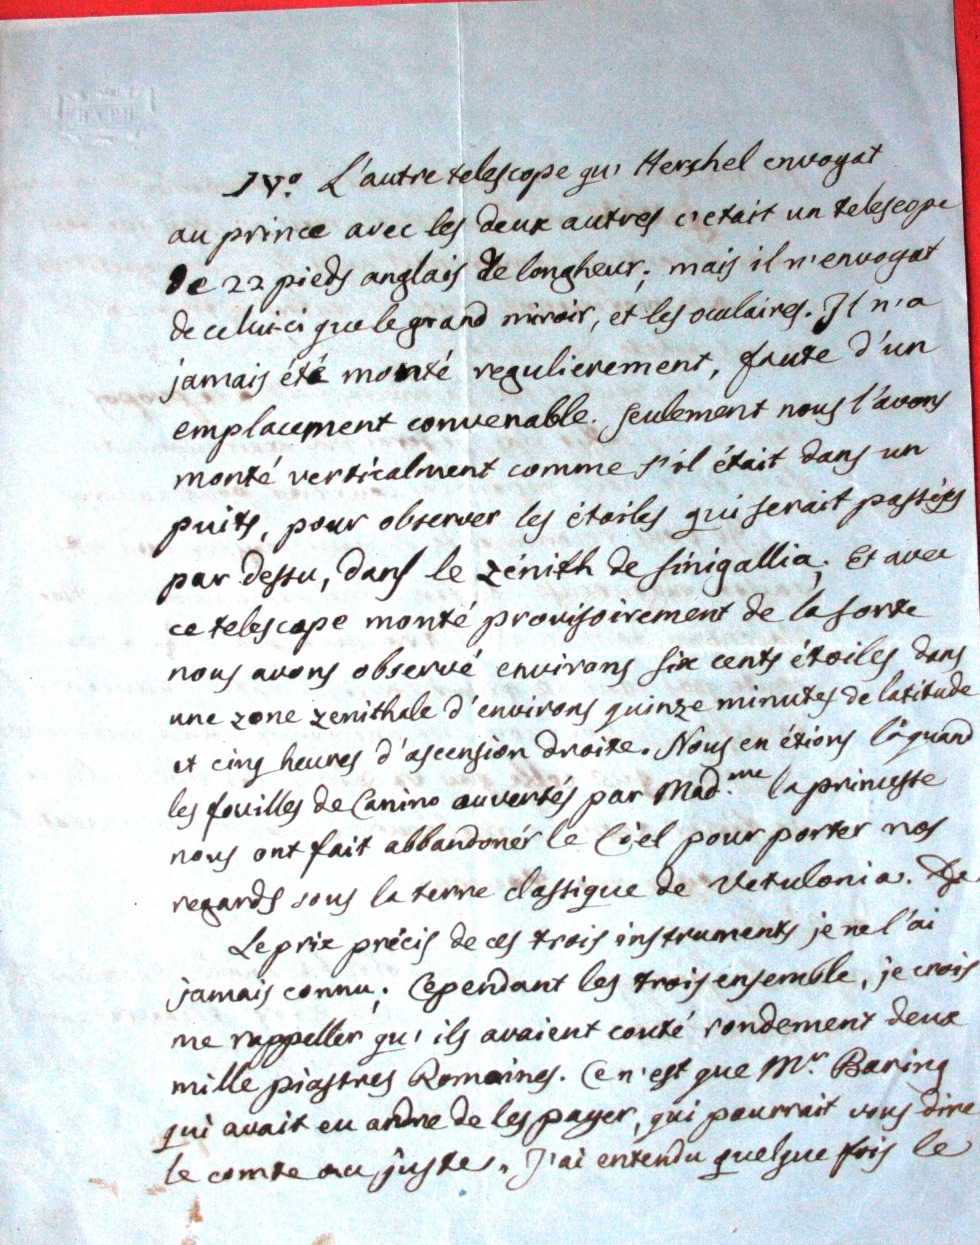 IVº L'autre telescope qu' Herschel envoyat
au prince avec les deux autres c'etait un telescope
de 22 pieds anglais de longheur; mais il n'envoyat
de celui-ci que le grand miroir, et les oculaires. Il n'a
jamais été monté regulierement, faute d'un
emplacement convenable. Seulement nous l'avons
monté verticalment comme s'il était dans un
puits, pour observer les étoiles qui serait passées
par dessu, dans le zénith de Sinigallia; Et avec
ce telescope monté provisoirement de la sorte
nous avons observé environs six cents étoiles dans
une zone zenithale d'environs quinze minutes de latitude
et cinq heures d'ascension droite. Nous en étions là quand
les fouilles de Canino ouvertés par Mad.me la princesse
nous ont fait abbandonér le Ciel pour porter nos
regards sous la terre classique de Vetulonia.
Le prix précis de ces trois instruments je ne l'ai
jamais connu; Cependant les trois ensemble, je crois
me rappeller qu' ils avaient couté rondement deux
mille piastres Romaines. Ce n'est que Mr. Baring
qui avait eu ordre de les payer, qui pourrait vous dire
le comte au juste. J'ai entendu quelque fois le